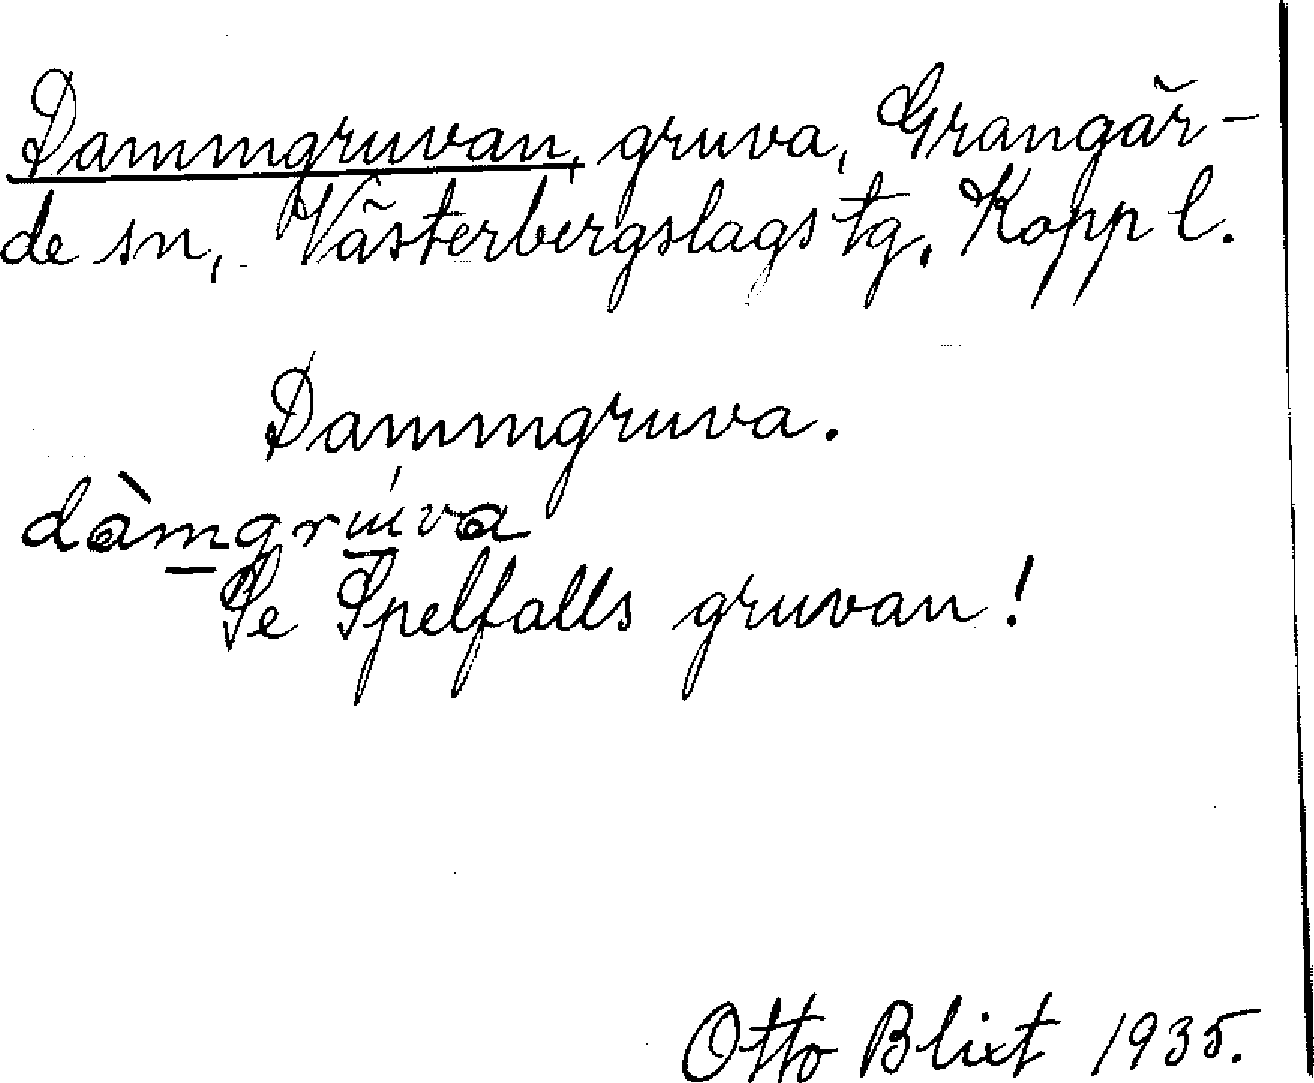 Dammgruvan, gruva, Grangär-
de sn, Västerbergslags tg, Kopp l.
Dammgruva.
dàmgruva
Se Spelfalls gruvan!
Otto Blixt 1935.